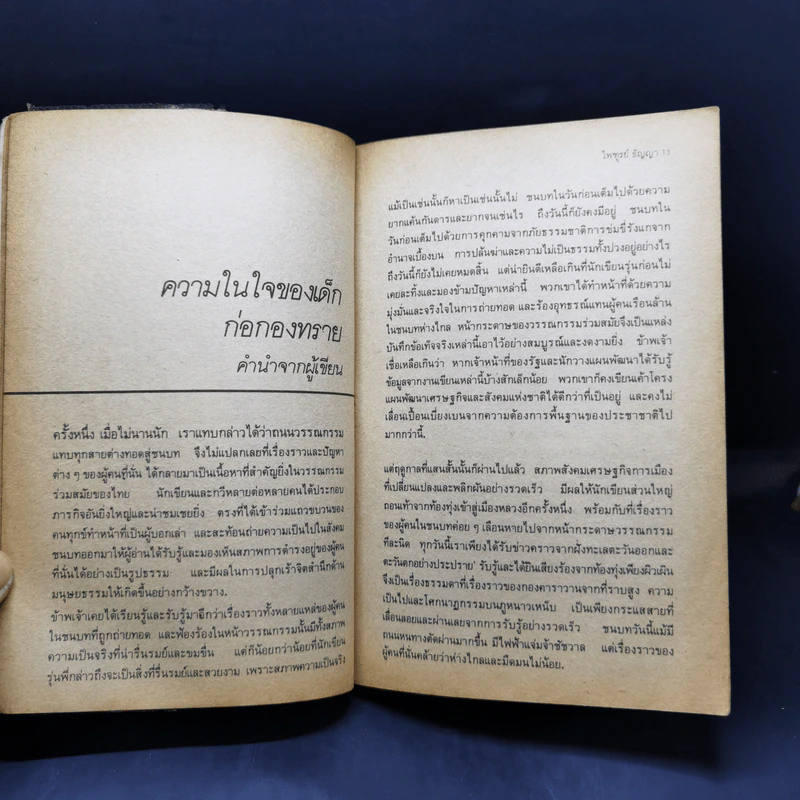 ความในใจของเด็ก
ก่อกองทราย
คำนำจากผู้เขียน
ครั้งหนึ่ง เมื่อไม่นานนัก เราแทบกล่าวได้ว่าถนนวรรณกรรม
แทบทุกสายต่างทอดสู่ชนบท จึงไม่แปลกเลยที่เรื่องราวและปัญหา
ต่าง ๆ ของผู้คนที่นั่น ได้กลายมาเป็นเนื้อหาที่สำคัญยิ่งในวรรณกรรม
ร่วมสมัยของไทย นักเขียนและกวีหลายต่อหลายคนได้ประกอบ
ภาระกิจอันยิ่งใหญ่และน่าชมเชยยิ่ง ตรงที่ได้เข้าร่วมแถวขบวนของ
คนทุกข์ทำหน้าที่เป็นผู้บอกเล่า และสะท้อนถ่ายความเป็นไปในสังคม
ชนบทออกมาให้ผู้อ่านได้รับรู้และมองเห็นสภาพการดำรงอยู่ของผู้คน
ที่นั่นได้อย่างเป็นรูปธรรม และมีผลในการปลุกเร้าจิตสำนึกด้าน
มนุษยธรรมให้เกิดขึ้นอย่างกว้างขวาง
ข้าพเจ้าเคยได้เรียนรู้และรับรู้มาอีกว่าเรื่องราวทั้งหลายแหล่ของผู้คน
ในชนบทที่ถูกถ่ายทอด และฟ้องร้องในหน้าวรรณกรรมนั้นมีทั้งสภาพ
ความเป็นจริงที่น่ารื่นรมย์และขมขื่น แต่ก็น้อยกว่าน้อยที่นักเขียน
รุ่นพี่กล่าวถึงจะเป็นสิ่งที่รื่นรมย์และสวยงาม เพราะสภาพความเป็นจริง
ไพฑูรย์ ธัญญา 13
แม้เป็นเช่นนั้นก็หาเป็นเช่นนั้นไม่ ชนบทในวันก่อนเต็มไปด้วยความ
ยากแค้นกันดารและยากจนเช่นไร ถึงวันนี้ก็ยังคงมีอยู่ ชนบทใน
วันก่อนเต็มไปด้วยการคุกคามจากภัยธรรมชาติการข่มขี่รังแกจาก
อำนาจเบื้องบน การปล้นฆ่าและความไม่เป็นธรรมทั้งปวงอยู่อย่างไร
ถึงวันนี้ก็ยังไม่เคยหมดสิ้น แต่น่ายินดีเหลือเกินที่นักเขียนรุ่นก่อนไม่
เคยละทิ้งและมองข้ามปัญหาเหล่านี้ พวกเขาได้ทำหน้าที่ด้วยความ
มุ่งมั่นและจริงใจในการถ่ายทอด และร้องอุทธรณ์แทนผู้คนเรือนล้าน
ในชนบทห่างไกล หน้ากระดาษของวรรณกรรมร่วมสมัยจึงเป็นแหล่ง
บันทึกข้อเท็จจริงเหล่านี้เอาไว้อย่างสมบูรณ์และงดงามยิ่ง ข้าพเจ้า
เชื่อเหลือเกินว่า หากเจ้าหน้าที่ของรัฐและนักวางแผนพัฒนาได้รับรู้
ข้อมูลจากงานเขียนเหล่านี้บ้างสักเล็กน้อย พวกเขาก็คงเขียนเค้าโครง
แผนพัฒนาเศรษฐกิจและสังคมแห่งชาติได้ดีกว่าที่เป็นอยู่ และคงไม่
เลื่อนเปื้อนเบี่ยงเบนจากความต้องการพื้นฐานของประชาชาติไป
มากกว่านี้.
แต่ฤดูกาลที่แสนสั้นนั้นก็ผ่านไปแล้ว สภาพสังคมเศรษฐกิจการเมือง
ที่เปลี่ยนแปลงและพลิกผันอย่างรวดเร็ว มีผลให้นักเขียนส่วนใหญ่
ถอนเท้าจากท้องทุ่งเข้าสู่เมืองหลวงอีกครั้งหนึ่ง พร้อมกับที่เรื่องราว
ของผู้คนในชนบทค่อย ๆ เลือนหายไปจากหน้ากระดาษวรรณกรรม
ทีละนิด ทุกวันนี้เราเพียงได้รับข่าวคราวจากฝั่งทะเลตะวันออกและ
ตะวันตกอย่างประปราย รับรู้และได้ยินเสียงร้องจากท้องทุ่งเพียงผิวเผิน
จึงเป็นเรื่องธรรมดาที่เรื่องราวของกองคาราวานจากที่ราบสูง ความ
เป็นไปและโศกนาฏกรรมบนภูหนาวเหน็บ เป็นเพียงกระแสสายที่
เลื่อนลอยและผ่านเลยจากการรับรู้อย่างรวดเร็ว ชนบทวันนี้แม้มี
ถนนหนทางตัดผ่านมากขึ้น มีไฟฟ้าแจ่มจ้าชัชวาล แต่เรื่องราวของ
ผู้คนที่นั่นคล้ายว่าห่างไกลและมืดมนไม่น้อย.